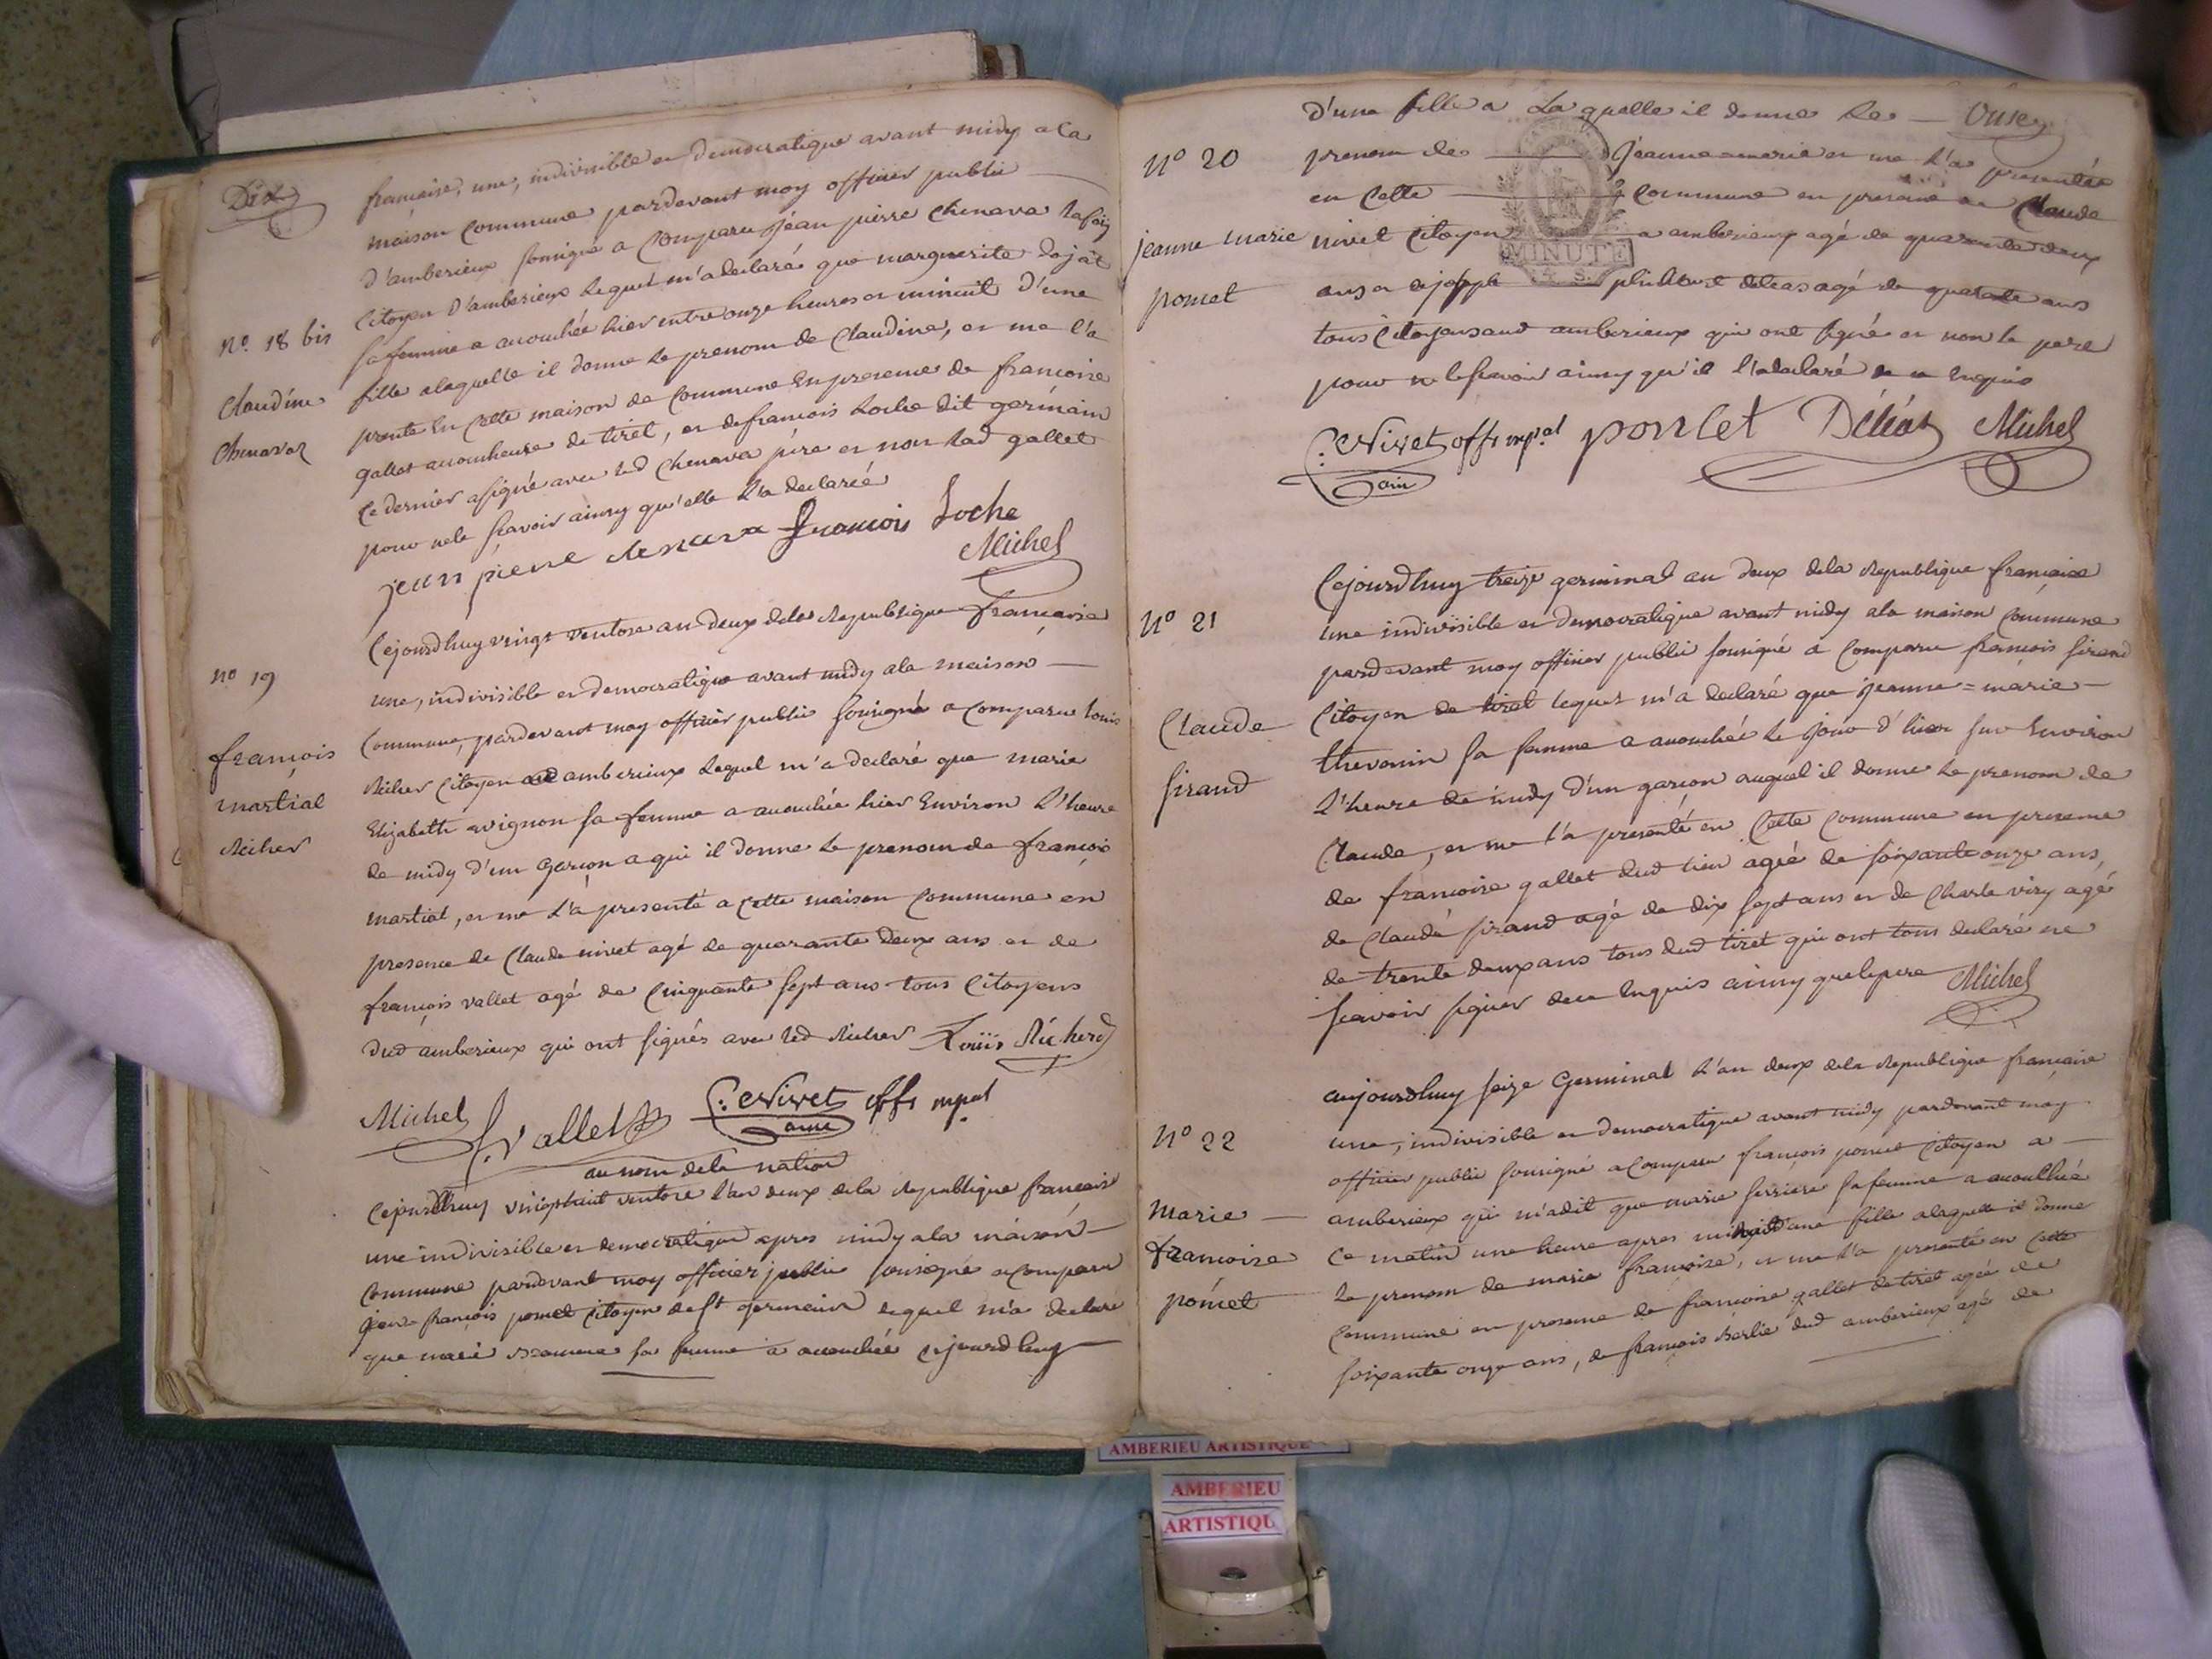 Dix
francoise, une, indivisible et democratique avant midy a la
maison commune pardevant moy officier public
d'amberieux sousigné a comparu jean pierre chenava
citoyen d'amberieux lequel m'a declaré que marguerite dojat
sa femme a accouchée hier entre onze heures et minuit d'une
fille alaquelle il donne le prenom de Claudine, et me l'a
en cette maison de Commune en presence de francoise
gallet accoucheuse de tiret, et de francois Loche dit germain
ce dernier a signé avec led chenava père et non lad gallet
pour ne le scavoir ainsy qu'elle l'a declarée
jean piere chenava francois Loche
Michel
N.º 18 bis
Claudine
Chenavaz
Cejourdhuy vingt ventose an deux dela Republique francaise
une, indivisible et democratique avant midy ala maison
Commune, pardevant moy officier public sousigné a comparu louis
Richer Citoyen amberieux lequel m'a declaré que marie
Elizabeth avignon sa femme a accouchée hier Environ l'heure
de midy d'un garcon a qui il donne le prenom de francois
martial, et me l'a presenté a cette maison commune en
presence de Claude nivet agé de quarante deux ans et de
françois vallet agé de cinquante sept ans tous Citoyens
dud amberieux qui ont signés avec led Richer Louis Richerd
nº 19
françois
martial
Richer
Michel f. vallet C: Nivet offr mpal
ainé
au nom dela nation
Cejourdhuy vingthuit ventose l'an deux dela republique francaise
une indivisible et democratique apres midy ala maison
Commune pardevant moy officier public sousigné a comparu
jean-françois pomet citoyen de st germain lequel m'a declaré
que marie sa femme a accouchée cejourdhuy
d'une fille a La quelle il donne Le Onze
prenom de Jeanne-marie et me l'a presentée
en Cette Commune en presence de Claude
nivet Citoyen a amberieux agé de quarante deux
ans et de joseph philibert deleas agé de quarante ans
tous Citoyens aud amberieux qui ont signé et non le pere
pour ne le scavoir ainsy qu'il l'a declaré de ce Enquis
Nº 20
jeanne marie
pomet
MINUTE
4 S.
C: Nivet offr mpal poncet Déléas Michel
ainé
Cejourdhuy treize germinal an deux dela Republique francaise
une indivisible et democratique avant midy ala maison Commune
pardevant moy officier public sousigné a Comparu francois sirand
Citoyen de tiret lequel m'a declaré que jeanne=marie
thevenin sa femme a accouchée le jour d'hier sur Environ
l'heure de midy d'un garcon auquel il donne le prenom de
Claude, et me l'a presenté en cette commune en presence
de francoise gallet dud lieu agée de soixante onze ans,
de Claude sirand agé de dix sept ans et de Charle viry agé
de trente deux ans tous dud tiret qui ont tous declaré ne
scavoir signer dece Enquis ainsy que le pere Michel
Nº 21
Claude
sirand
aujourdhuy seize Germinal l'an deux dela Republique francaise
une, indivisible et democratique avant midy pardevant moy
officier public sousigné a Comparu françois pomet Citoyen a
amberieux qui m'a dit que marie ferriere sa femme a accouchée
ce matin une heure apres minuit d'une fille alaquelle il donne
le prenom de marie francoise, et me l'a presenté en cette
Commune en presence de francoise gallet de tiret agée de
soixante onze ans, de francois dud amberieux agé de
Nº 22
Marie
francoise
pomet
AMBERIEU ARTISTIQUE
AMBERIEU
ARTISTIQU